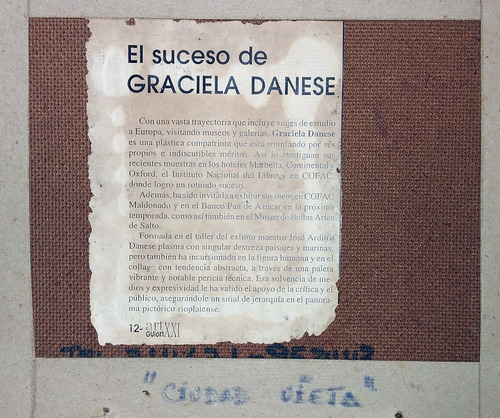 El suceso de
GRACIELA DANESE
Con una vasta trayectoria que incluye viajes de estudio
a Europa, visitando museos y galerías, Graciela Danese
es una plástica compatriota que está triunfando por sus
propios e indiscutibles méritos. Así lo testiguan sus
recientes muestras en los hoteles Marbella, Continental y
Oxford, el Instituto Nacional del Libro, y en COFAC,
donde logró un rotundo suceso.
Además, ha sido invitada a exhibir sus óleos en COFAC
Maldonado y en el Banco Pan de Azúcar en la próxima
temporada, como así también en el Museo de Bellas Artes
de Salto.
Formada en el taller del extinto maestro José
Danese plasma con singular destreza paisajes y marinas,
pero también ha incursionado en la figura humana y en el
collage con tendencia abstracta, a través de una paleta
vibrante y notable pericia técnica. Esa solvencia de me-
dios y expresividad le ha valido el apoyo de la crítica y el
público, asegurándole un sitial de jerarquía en el panora-
ma pictórico rioplatense.
12- artXXI
Guión
"CIUDAD VIEJA"